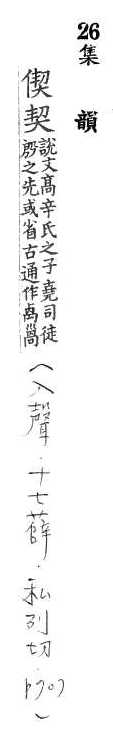 26集　韻
偰契說文高辛氏之子堯司徒
殷之先或省古通作卨𥜽
（入聲．十七薛．私列切．p707）